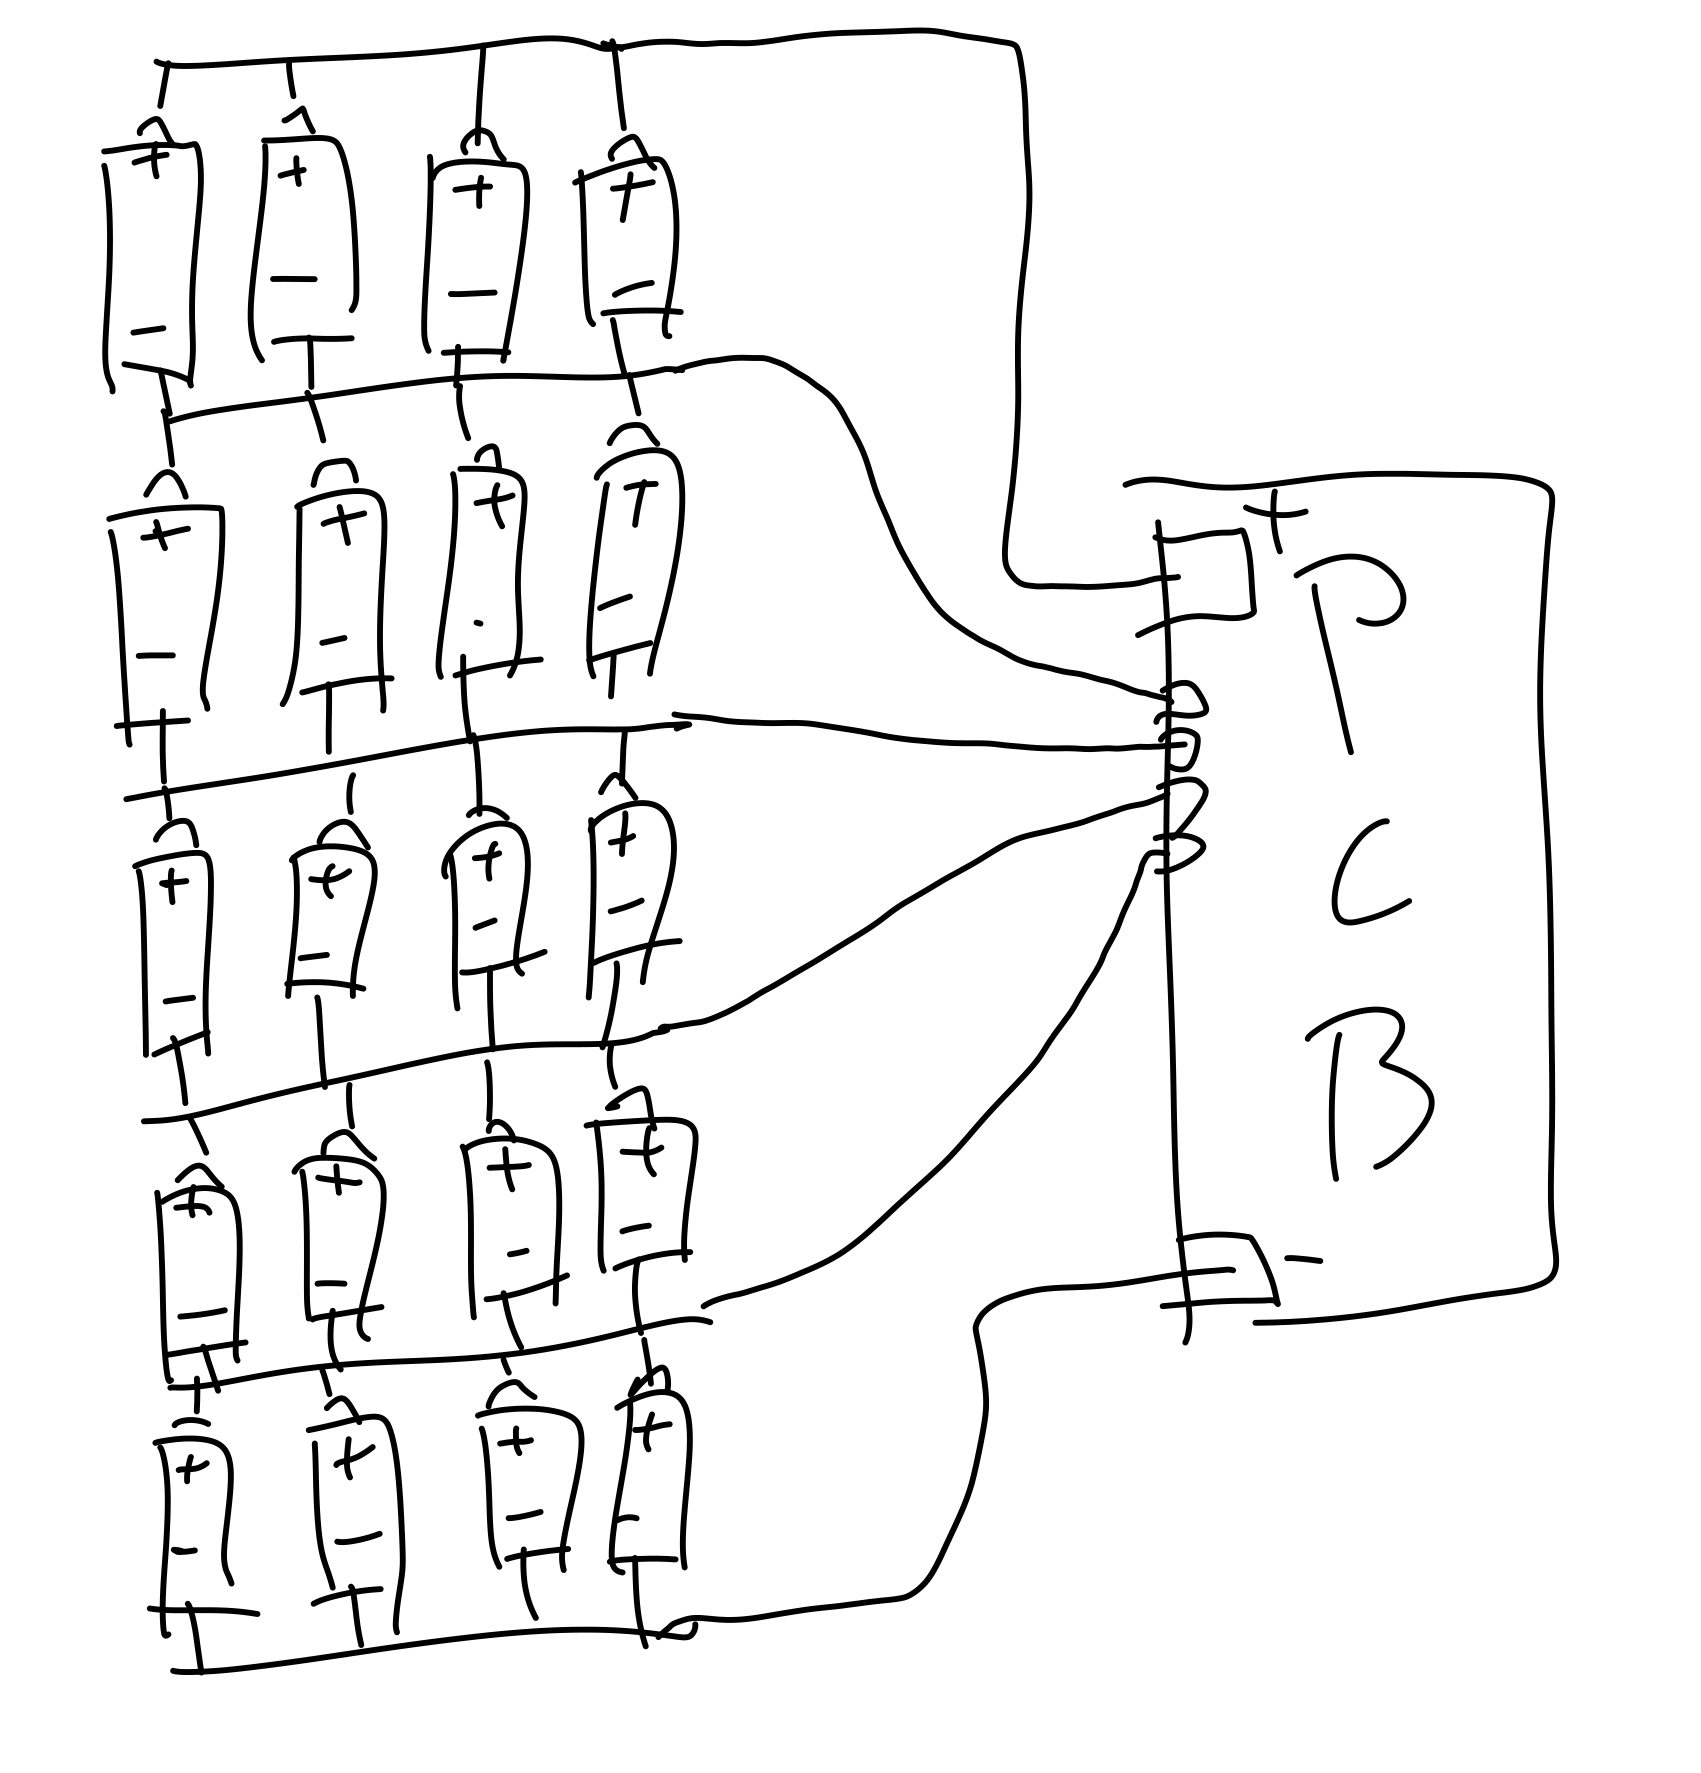 + + + +
- - - -
+ + + +
- - - -
+ + + +
- - - -
+ + + +
- - - -
+ + + +
- - - -
+
P
C
B
-